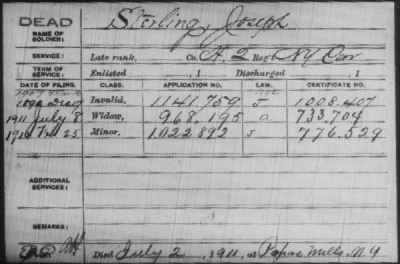 DEAD
NAME OF SOLDIER:
Sterling, Joseph
SERVICE:
Late rank, Co. H. 2 Reg't NY Cav
TERM OF SERVICE:
Enlisted , 1 Discharged , 1
DATE OF FILING. CLASS. APPLICATION NO. LAW. CERTIFICATE NO.
Invalid, 1141.759 J 1008.407
1911 July 8 Widow, 968.195 733.704
25 Minor, 1022892 776.529
ADDITIONAL SERVICES:
REMARKS:
Died July 2, 1911, at Mills, N.Y